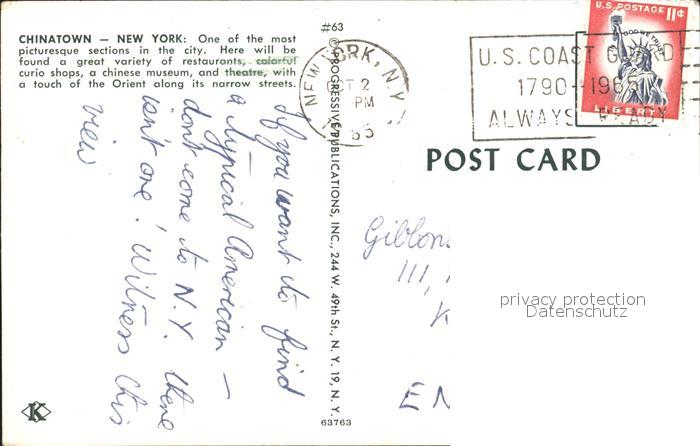 CHINATOWN — NEW YORK: One of the most
picturesque sections in the city. Here will be
found a great variety of restaurants, colorful
curio shops, a chinese museum, and theatre, with
a touch of the Orient along its narrow streets.
If you want to find
a typical American —
don't come to N.Y. there
isn't one! Witness this
view
#63
© PROGRESSIVE PUBLICATIONS, INC., 244 W. 49th St., N. Y. 19, N. Y.
63763
K
NEW YORK, N.Y.
2
PM
U.S. COAST GUARD
1790-1965
ALWAYS READY
U.S. POSTAGE 11¢
IN GOD WE TRUST
LIBERTY
POST CARD
Gibbons
111,
K
EN
privacy protection
Datenschutz